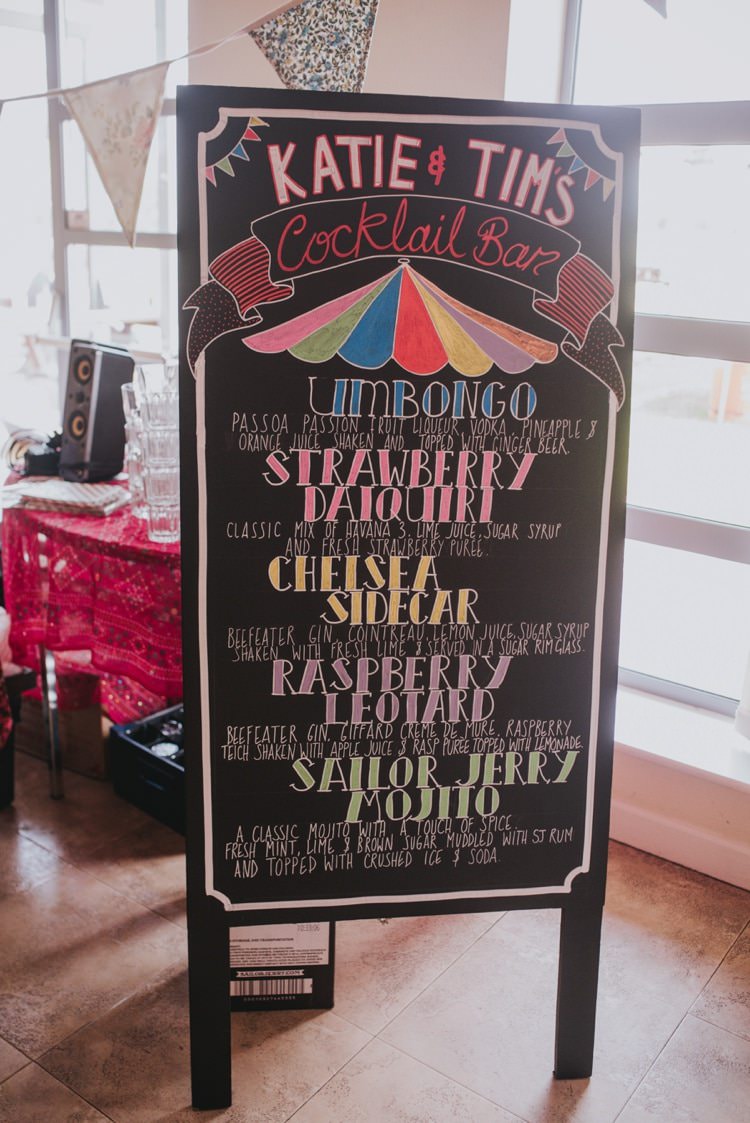 KATIE & TIM'S
Cocktail Bar
UMBONGO
PASSOA PASSION FRUIT LIQUEUR, VODKA, PINEAPPLE &
ORANGE JUICE SHAKEN AND TOPPED WITH GINGER BEER.
STRAWBERRY
DAIQUIRI
CLASSIC MIX OF HAVANA 3, LIME JUICE, SUGAR SYRUP
AND FRESH STRAWBERRY PUREE.
CHELSEA
SIDECAR
BEEFEATER GIN, COINTREAU, LEMON JUICE, SUGAR SYRUP
SHAKEN WITH FRESH LIME & SERVED IN A SUGAR RIM GLASS.
RASPBERRY
LEOTARD
BEEFEATER GIN, GIFFARD CREME DE MURE, RASPBERRY
TEICH SHAKEN WITH APPLE JUICE & RASP PUREE TOPPED WITH LEMONADE.
SAILOR JERRY
MOJITO
A CLASSIC MOJITO WITH A TOUCH OF SPICE.
FRESH MINT, LIME & BROWN SUGAR MUDDLED WITH SJ RUM
AND TOPPED WITH CRUSHED ICE & SODA.
SAILORJERRY.COM